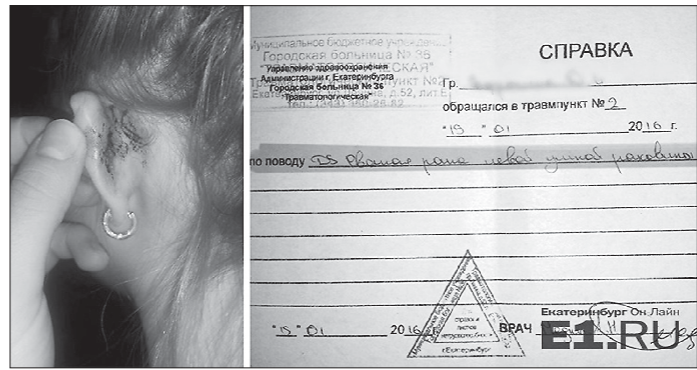 Муниципальное бюджетное учрежден
Городская больница № 36
"Управление здравоохранения
Администрации г. Екатеринбурга
Городская больница № 36
"Травматологическая"
д.52, лит Е
СПРАВКА
Гр.
обращался в травмпункт № 2
"15" 01 2016 г.
по поводу DS Рваная рана левой ушной раковины
"15" 01 2016 г. ВРАЧ
справок и
листков
г.Екатеринбург
Екатеринбург Он-Лайн
E1.RU